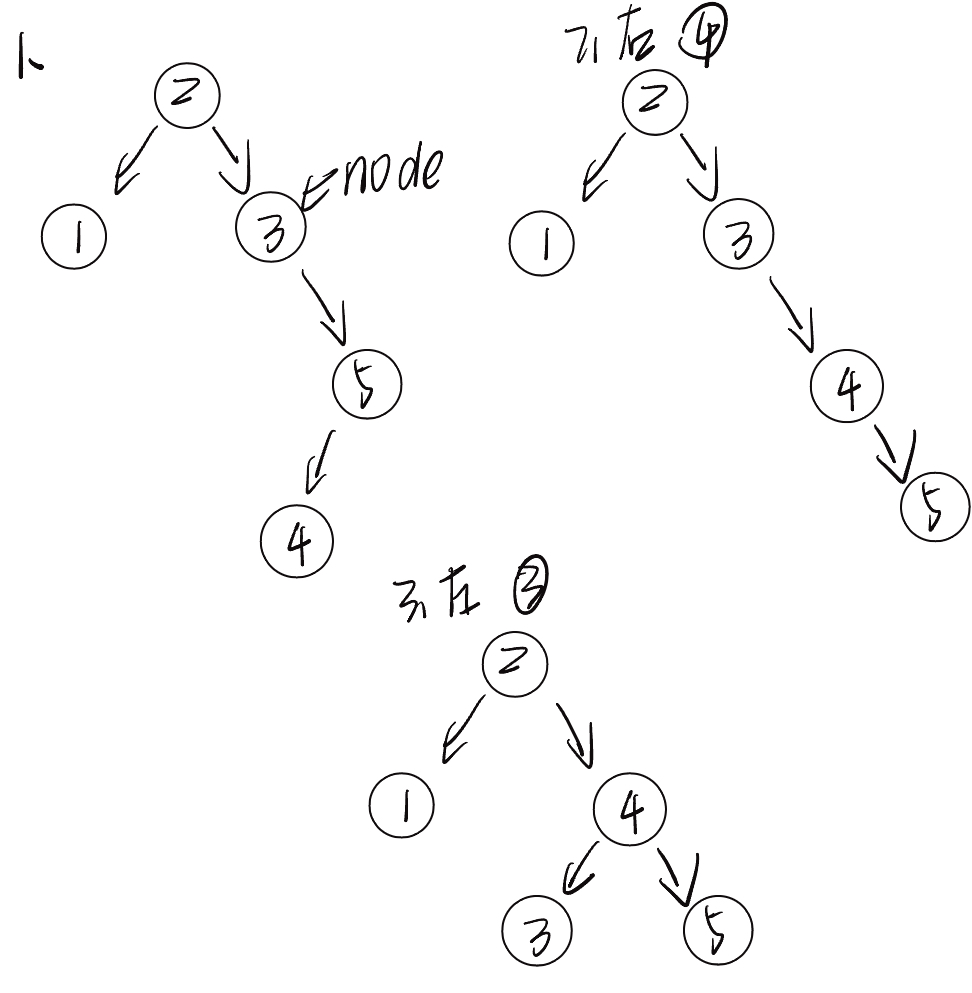 1、
2
←node
1
3
5
4
2、右④
2
1
3
4
5
3、左③
2
1
4
3
5